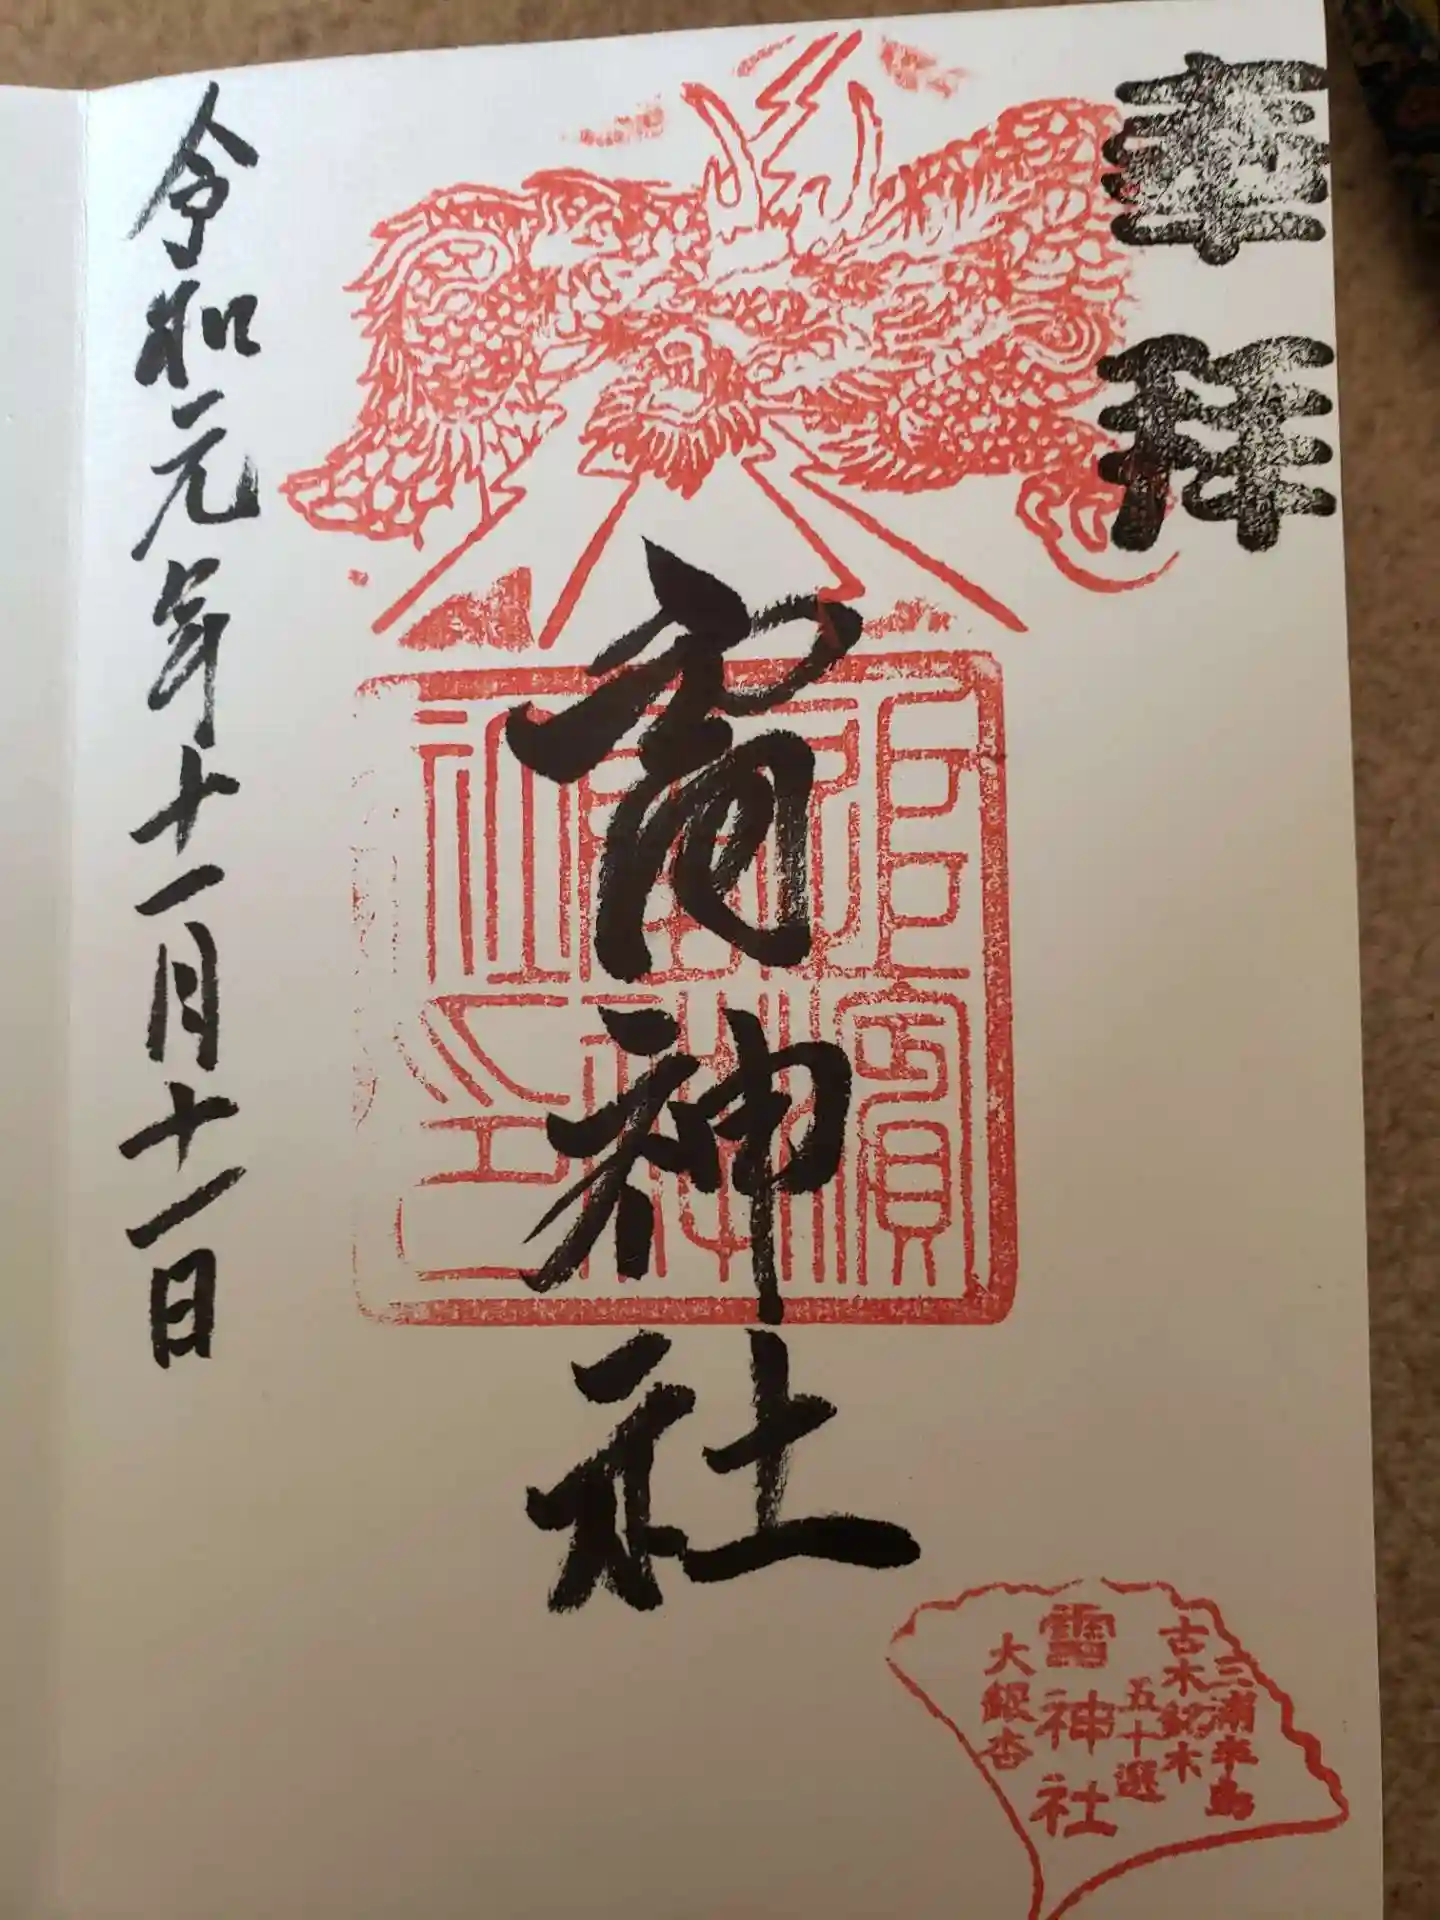 奉拝
雷神社
令和元年十一月十一日
三浦半島
古木銘木
五十選
雷神社
大銀杏